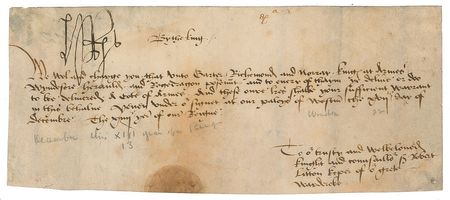 By the king
We wol and charge you that unto Garter Richemond and Norrey kings at Armes
Wyndesore herauld and Rougedragon and to every of thaim ye delivere or doo
to be delivered a Cote of Armes And thise oure lres shalbe your sufficient warrant
in this behalve Yeven under oure signet at our paloys of Westm the day of
Decembre The yere of our Reigne
December
13
To our trusty and Welbeloved
knight and counsaillor Sr Robert
Litton keper of our grete
Warderobe